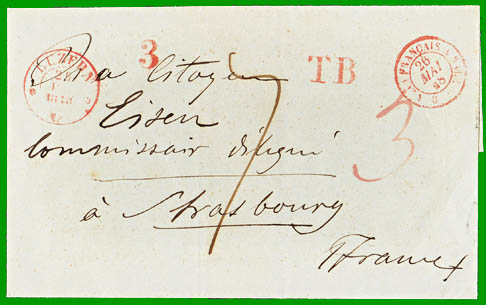 LUZERN
3
TB
FRANÇAIS A BALE
26
MAI
48
a Citoyen
Eisen
Commissair délégué
3
7
à Strasbourg
France